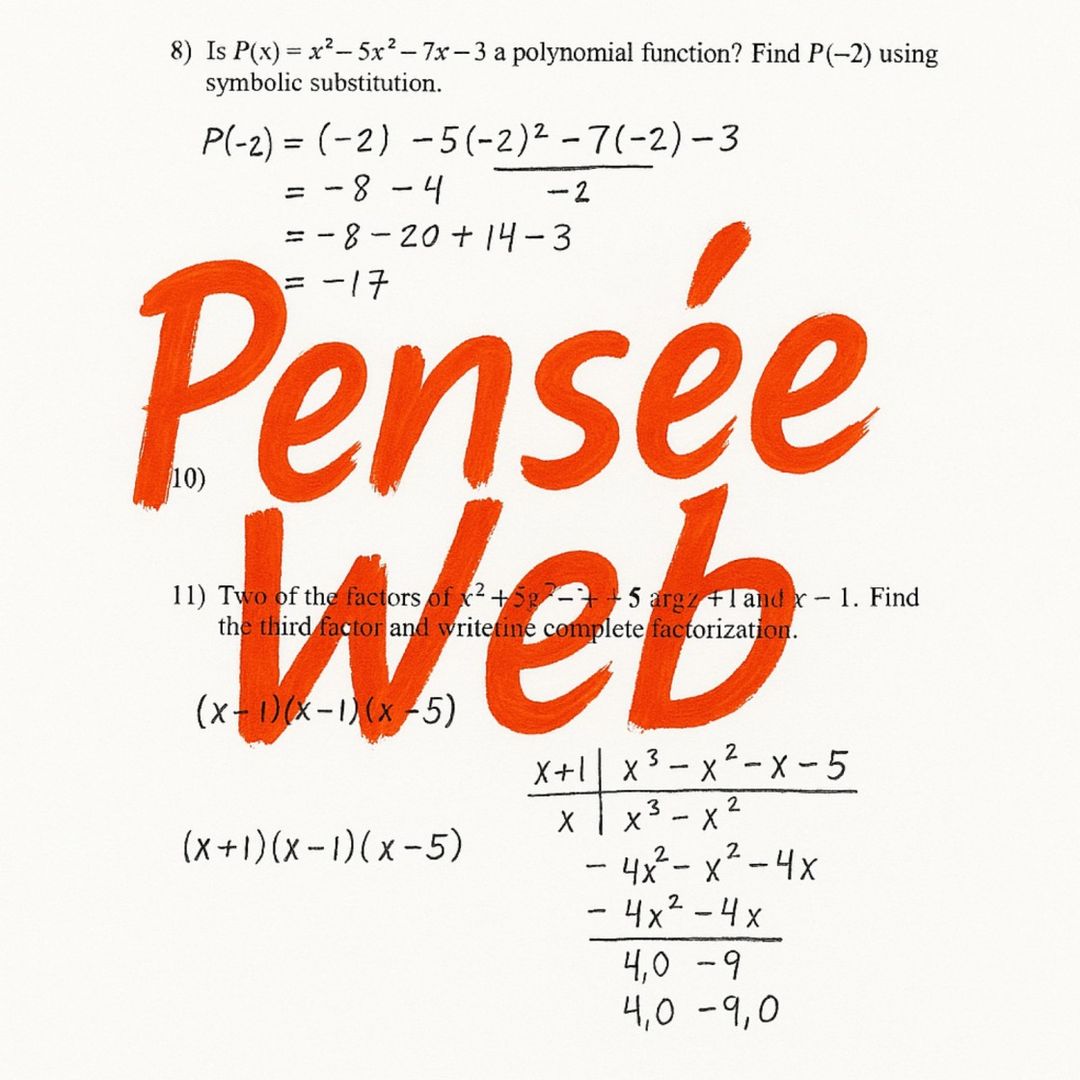 8) Is P(x) = x² – 5x² – 7x – 3 a polynomial function? Find P(–2) using
symbolic substitution.
P(-2) = (-2) -5(-2)² -7(-2) -3
= -8 -4 -2
= -8 -20 + 14 -3
= -17
Pensée
10)
Web
11) Two of the factors of x² + 5g² – + + 5 argz + 1 and x – 1. Find
the third factor and writetine complete factorization.
(x-1)(x-1)(x-5)
x+1 | x³ - x² - x - 5
x | x³ - x²
(x+1)(x-1)(x-5)
- 4x² - x² - 4x
- 4x² - 4x
4,0 -9
4,0 -9,0